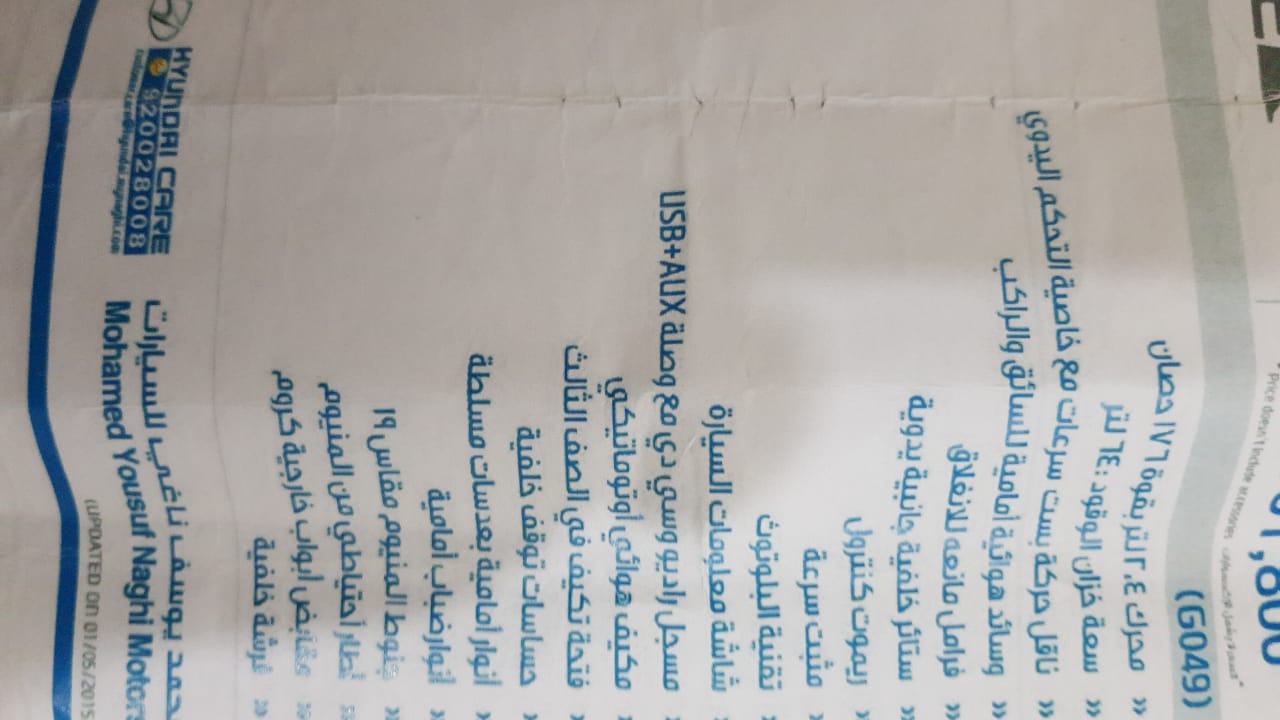 1,800
*Price doesn't include accessories
(G049)
» محرك ٢.٤ لتر بقوة ١٧٦ حصان
» سعة خزان الوقود: ٦٤ لتر
» ناقل حركة بست سرعات مع خاصية التحكم اليدوي
» وسائد هوائية أمامية للسائق والراكب
» فرامل مانعه للانغلاق
» ستائر خلفية جانبية يدوية
» ريموت كنترول
» مثبت سرعة
» تقنية البلوتوث
» شاشة معلومات السيارة
» مسجل راديو وسي دي مع وصلة USB+AUX
» مكيف هوائي أوتوماتيكي
» فتحة تكييف في الصف الثالث
» حساسات توقف خلفية
» أنوار أمامية بعدسات مسلطة
» أنوار ضباب أمامية
» جنوط المنيوم مقاس ١٩
» إطار أحتياطي من المنيوم
» مقبض أبواب خارجية كروم
» فرشة خلفية
HYUNDAI CARE
920028008
حمد يوسف ناغي للسيارات
Mohamed Yousuf Naghi Motors
(UPDATED ON 01/05/2015